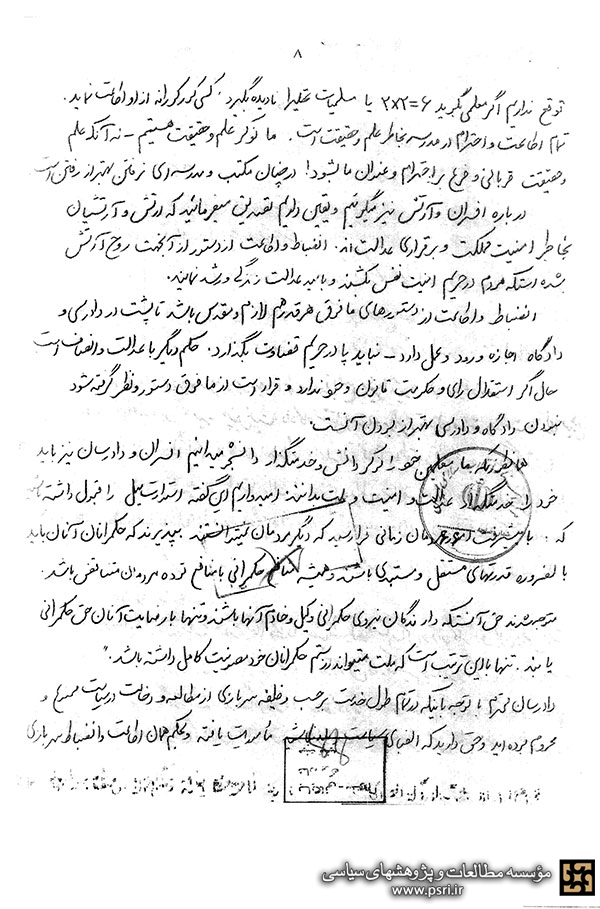 ۸
توقع نداریم اگر معلمی بگوید ۶=۲x۲ یا مسلمیات عقلی را نادیده بگیرد کسی کورکورانه از او اطاعت نماید.
تمام اطاعت و احترام در مدرسه بخاطر علم و حقیقت است. ما نوکر علم و حقیقت هستیم - نه آنکه علم
و حقیقت قربانی و فرع بر احترام و عنوان ما بشود! در چنان مکتب و مدرسه‌ای نرفتن بهتر از رفتن است
درباره افسران و ارتش نیز میگوئیم و یقین داریم تصدیق میفرمائید که ارتش و ارتشیان
بخاطر امنیت مملکت و برقراری عدالت‌اند. انضباط و اطاعت از دستور از آنجهت روح ارتش
شده است که مردم در حریم امنیت نفس بکشند و با امید عدالت زندگی و رشد نمایند.
انضباط و اطاعت از دستورهای مافوق هر قدر هم لازم و مقدس باشد تا پشت در دادرسی و
دادگاه اجازه ورود و عمل دارد - نباید پا در حریم قضاوت بگذارد. حکم دیگر با عدالت و انصاف است
حال اگر استقلال رأی و حکومت قانون وجود ندارد و قرار است از مافوق دستور و نظر گرفته شود
نبودن دادگاه و دادرسی بهتر از بودن آنست.
همانطور که ما معلمین خود را نوکر دانش و خدمتگذار دانشجو میدانیم افسران و دادرسان نیز باید
خود را خدمتگذار عدالت و امنیت و ملت بدانند. امیدواریم این گفته استوارت میل را قبول داشته باشید
که: با پیشرفت امور مردمان زمانی فرا رسید که دیگر مردمان نمیتوانستند بپذیرند که حکمرانان آنان باید
بالضروره قدرتهای مستقل و مستبدی باشند و همیشه منافع حکمرانی با منافع توده مردمان متناقض باشد.
متوجه شدند حق آنست که دارندگان نیروی حکمرانی وکیل و خادم آنها باشند و تنها با رضایت آنان حق حکمرانی
یابند. تنها با این ترتیب است که ملت میتواند از ستم حکمرانان خود مصونیت کامل داشته باشد."
دادرسان محترم با توجه باینکه در تمام طول خدمت بر حسب وظیفه سربازی از مطالعه و دخالت در سیاست ممنوع و
محروم بوده‌اید و حق دارید که الفبای سیاست مأموریت یافته و بحکم همان اطاعت و انضباط سربازی
مؤسسه مطالعات و پژوهشهای سیاسی
www.psri.ir